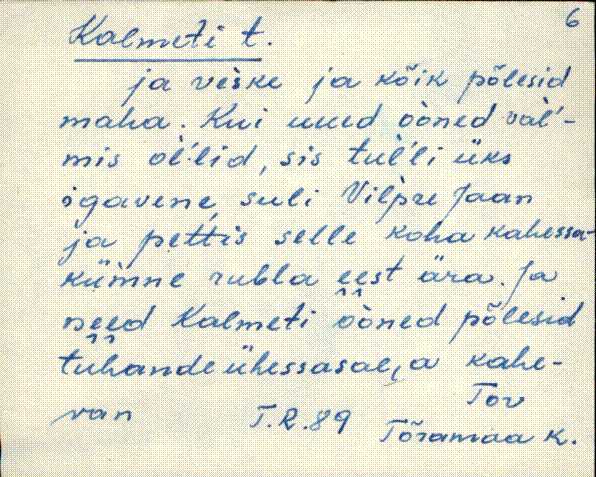 6
Kalmeti t.
ja vèske ja kõik põlesid
maha. Kui uued òòned val̀'-
mis ol̀'lid, sis tul̀'li üks
igavene suli Vil̀pre Jaan
ja pettis selle koha kahessa-
kümne rubla eest ära. Ja
need Kalmeti òòned põlesid
tuhande ühessasae, a kahe-
van T.R.89 Tov
Tõramaa k.